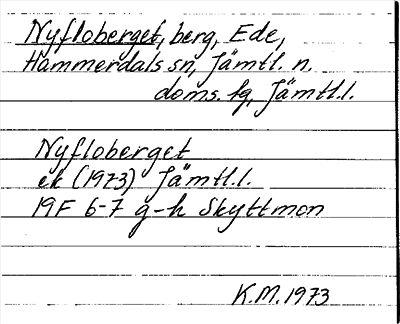 Nyfloberget, berg, Ede,
Hammerdals sn, Jämtl. n.
doms. hg, Jämtl.l.
Nyfloberget
ek (1973) Jämtl.l.
19F 6-7 g-h Skyttmon
K.M. 1973